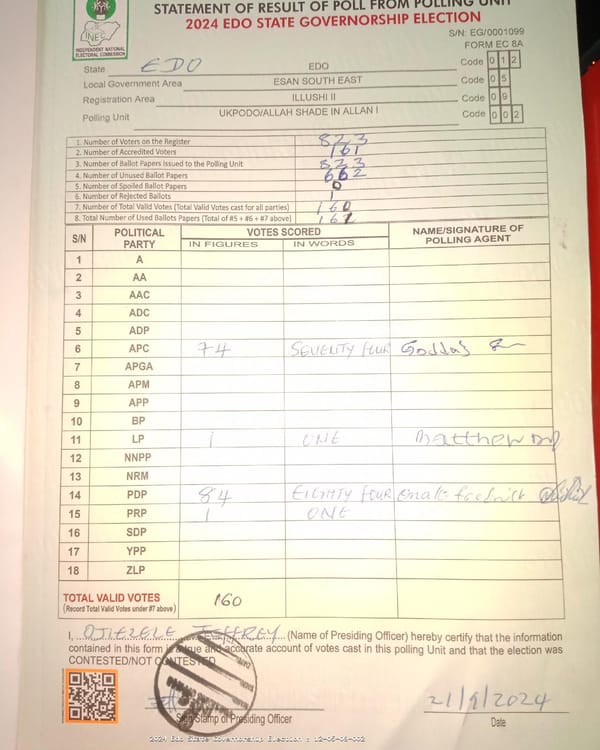 STATEMENT OF RESULT OF POLL FROM POLLING UNIT
2024 EDO STATE GOVERNORSHIP ELECTION
INEC
INDEPENDENT NATIONAL ELECTORAL COMMISSION
S/N: EG/0001099
FORM EC 8A
State EDO EDO Code 0 1 2
Local Government Area ESAN SOUTH EAST Code 0 5
Registration Area ILLUSHI II Code 0 9
Polling Unit UKPODO/ALLAH SHADE IN ALLAN I Code 0 0 2
1. Number of Voters on the Register 823
2. Number of Accredited Voters 161
3. Number of Ballot Papers Issued to the Polling Unit 823
4. Number of Unused Ballot Papers 662
5. Number of Spoiled Ballot Papers 0
6. Number of Rejected Ballots 1
7. Number of Total Valid Votes (Total Valid Votes cast for all parties) 160
8. Total Number of Used Ballots Papers (Total of #5 + #6 + #7 above) 161
S/N POLITICAL PARTY VOTES SCORED NAME/SIGNATURE OF POLLING AGENT
IN FIGURES IN WORDS
1 A
2 AA
3 AAC
4 ADC
5 ADP
6 APC 74 SEVENTY FOUR
7 APGA
8 APM
9 APP
10 BP
11 LP 1 ONE Matthew
12 NNPP
13 NRM
14 PDP 84 EIGHTY FOUR
15 PRP 1 ONE
16 SDP
17 YPP
18 ZLP
TOTAL VALID VOTES 160
(Record Total Valid Votes under #7 above)
I, OJIEZELE JEFFREY (Name of Presiding Officer) hereby certify that the information
contained in this form is a true and accurate account of votes cast in this polling Unit and that the election was
CONTESTED/NOT CONTESTED
Sign/Stamp of Presiding Officer
21/9/2024
Date
2024 Edo State Governorship Election : 12-05-09-002